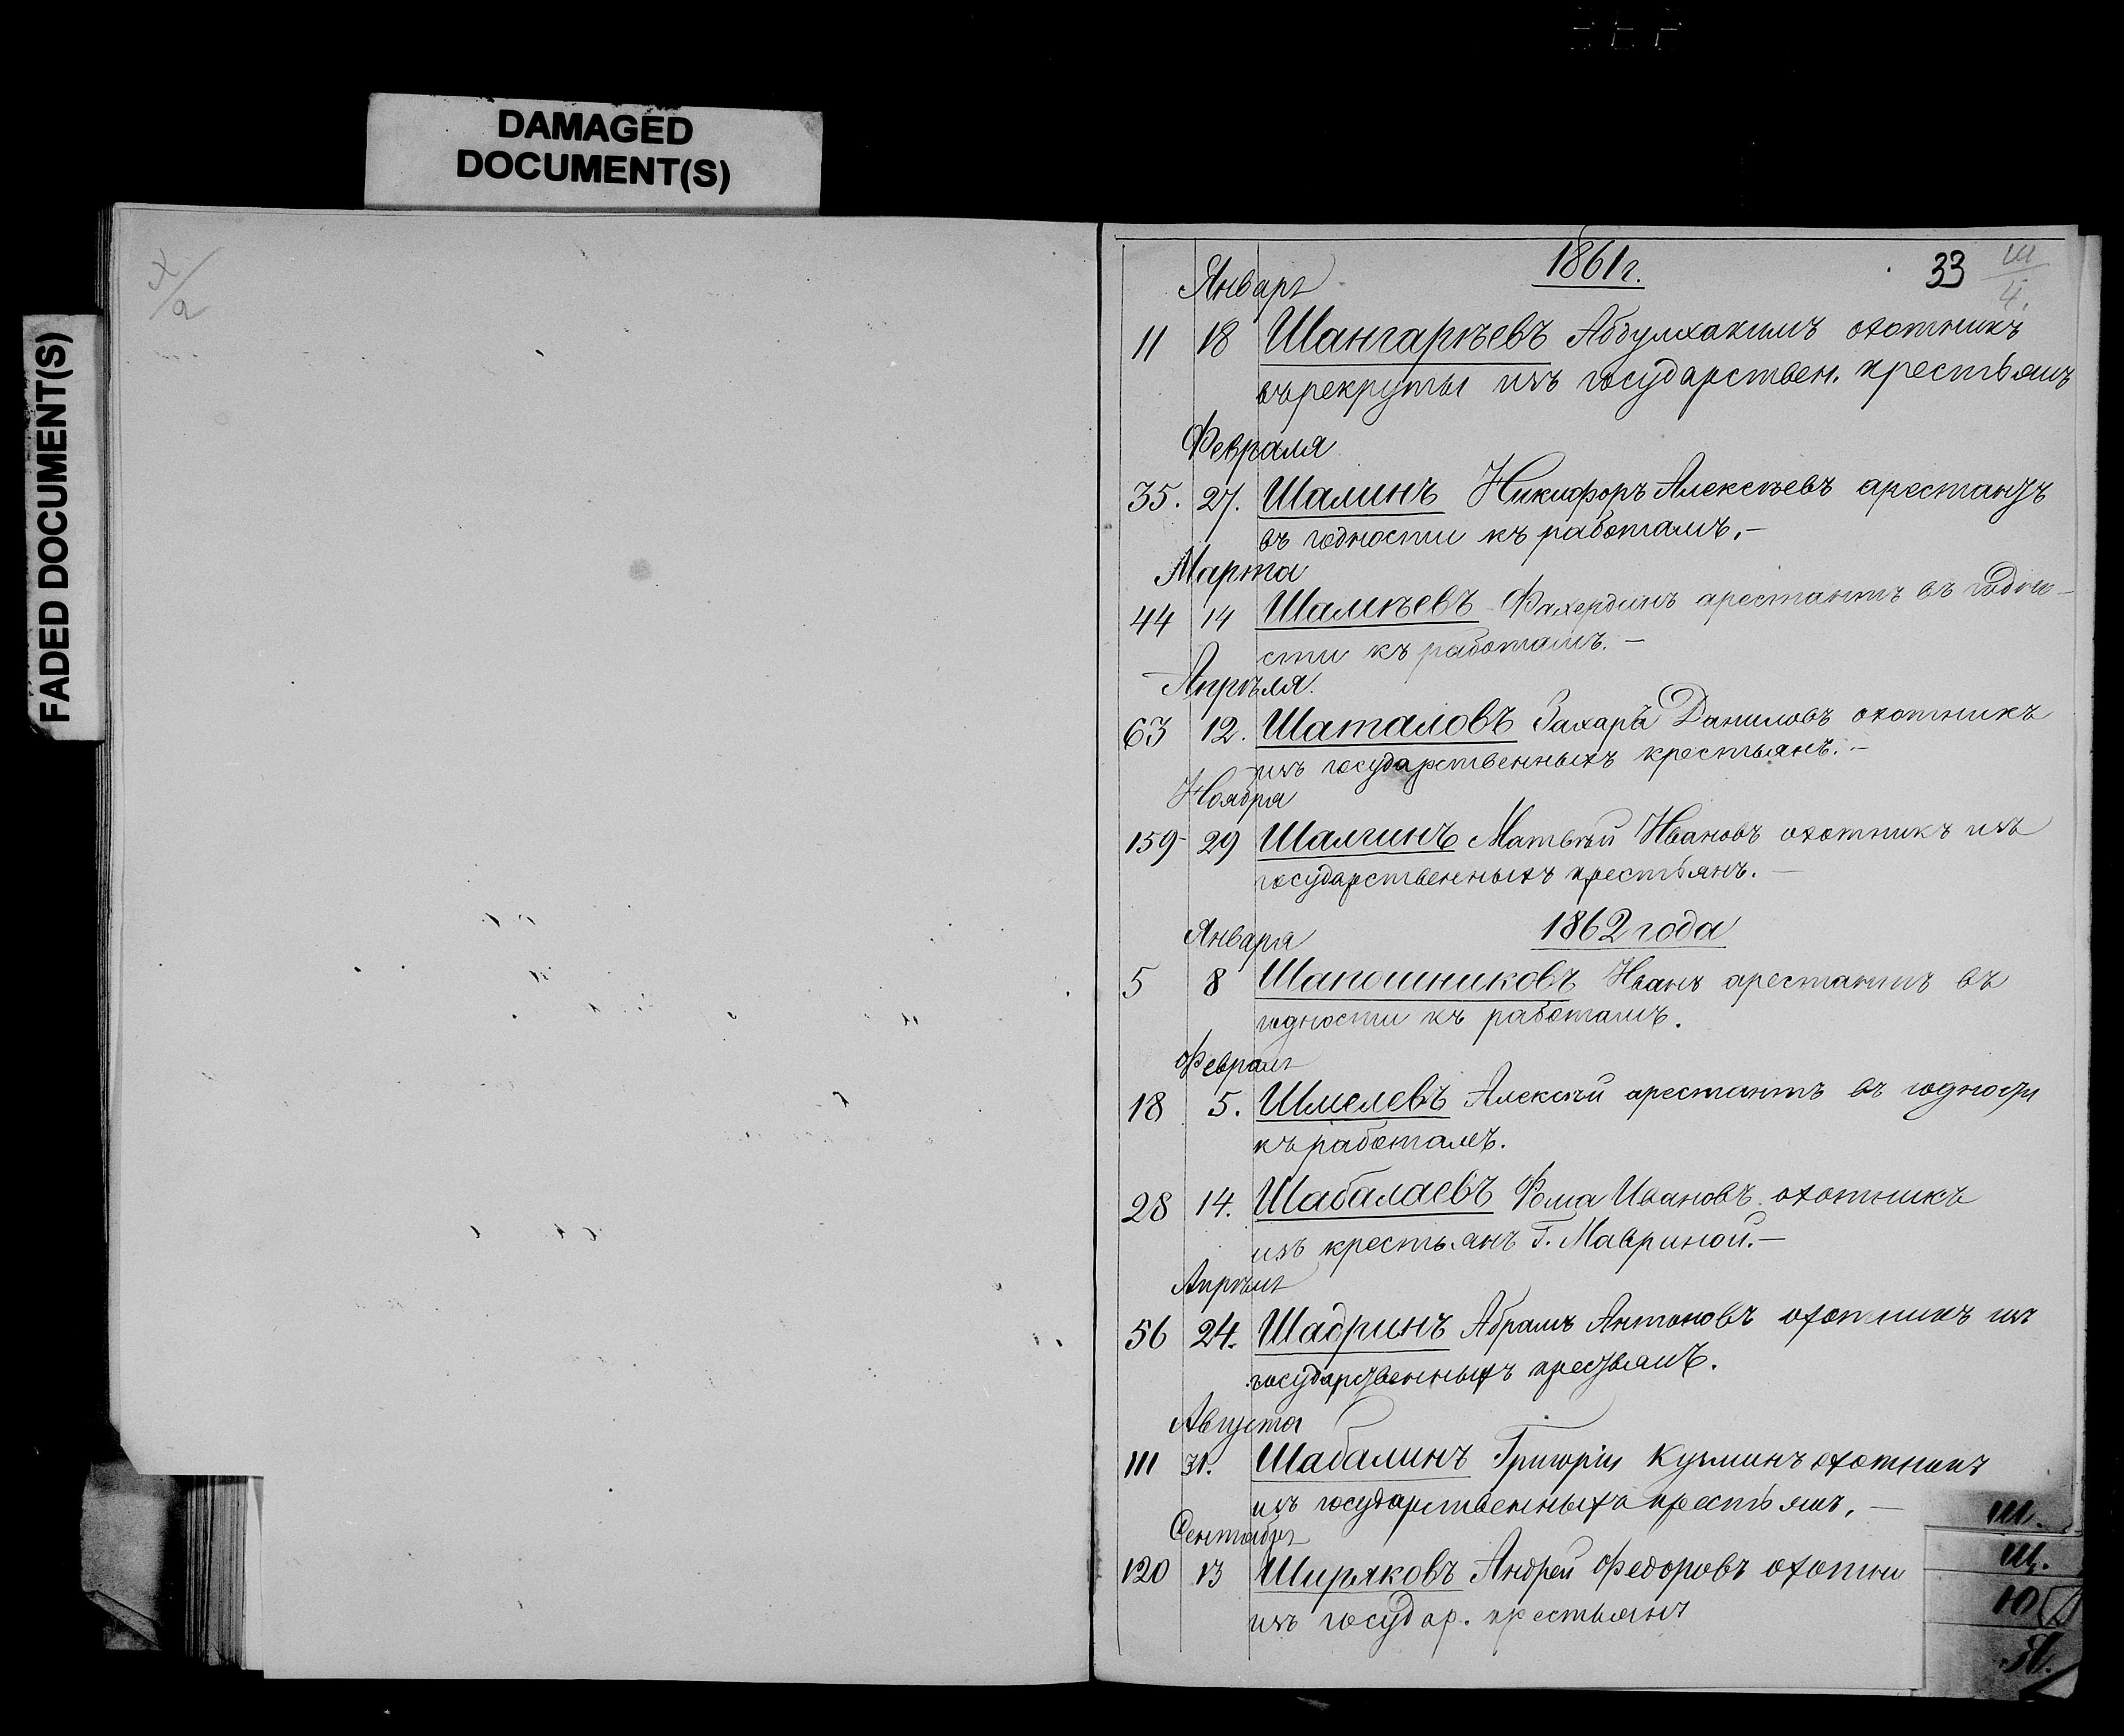 DAMAGED
DOCUMENT(S)
FADED DOCUMENT(S)
1861 г.
33
Ш/4.
Январь
11 18 Шангарѣевъ Абдулхакимъ охотникъ
въ рекруты изъ государствен. крестьянъ
Февраля
35. 27. Шалинъ Никифоръ Алексѣевъ арестантъ
въ годности къ работамъ.—
Марта
44 14 Шалѣевъ Фахердинъ арестантъ въ годно-
сти къ работамъ.—
Апрѣля.
63 12. Шаталовъ Захаръ Даниловъ охотникъ
изъ государственныхъ крестьянъ.—
Ноября
159 29 Шалгинъ Матвѣй Ивановъ охотникъ изъ
государственныхъ крестьянъ.—
1862 года
Января
5 8 Шапошниковъ Иванъ арестантъ въ
годности къ работамъ.
Февраль
18 5. Шмелевъ Алексѣй арестантъ въ годности
къ работамъ.
28 14. Шабалаевъ Фома Ивановъ охотникъ
изъ крестьянъ Г. Мавриной.—
Апрѣль
56 24. Шадринъ Абрамъ Антоновъ охотникъ изъ
государственныхъ крестьянъ.
Августа
111 31. Шабалинъ Григорій Кузминъ охотникъ
изъ государственныхъ крестьянъ.—
Сентябрь
120 13 Ширяковъ Андрей Федоровъ охотни
изъ государ. крестьянъ
Ш.
Щ.
Ю
Я.